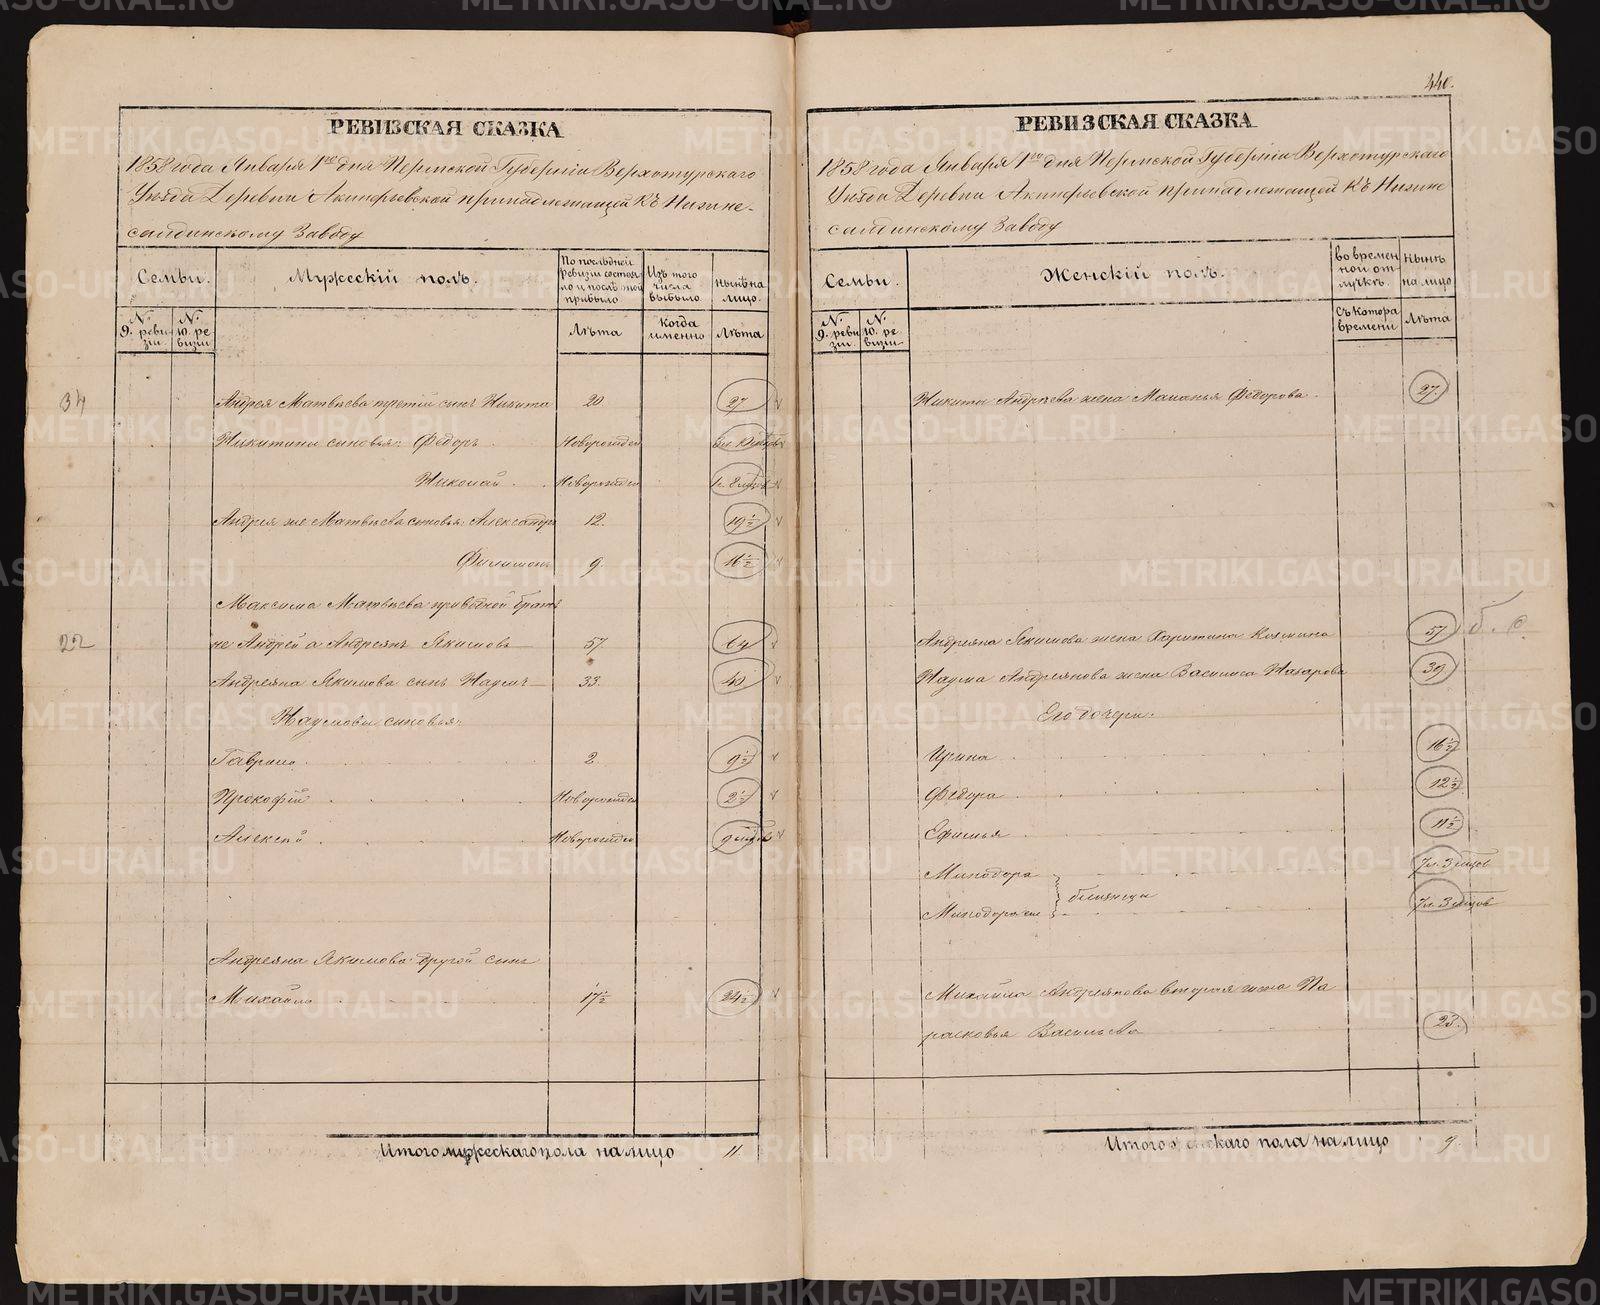 440.
РЕВИЗСКАЯ СКАЗКА
1858 года Января 1го дня Пермской Губерніи Верхотурскаго
Уѣзда Деревни Акинфьевской принадлежащей Къ Нижне-
салдинскому Заводу
Семьи.
Мужескій полъ.
По послѣдней ревизіи состояло и послѣ той прибыло
Изъ того числа выбыло
Нынѣ на лицо.
N. 9. ревизіи
N. 10. ревизіи
Лѣта
Когда именно
Лѣта
34 Андрея Матвѣева третій сынъ Никита 20 27
Никитины сыновья: Федоръ Новорожден
Николай Новорожден 1г. 8 мцов
Андрея же Матвѣева сыновья: Александръ 12. 19½
Филимонъ 9. 16½
Максима Матвѣева братъ
22 не Андрей а Андреянъ Якимовъ 57 64
Андреяна Якимова сынъ Наумъ 33. 40
Наумовы сыновья:
Гаврило 2 9½
Прокофій Новорожден 2½
Алексѣй Новорожден 9 мцов
Андреяна Якимова другой сынъ
Михайло 17½ 24½
Итого мужескаго пола на лицо 11
РЕВИЗСКАЯ СКАЗКА
1858 года Января 1го дня Пермской Губерніи Верхотурскаго
Уѣзда Деревни Акинфьевской принадлежащей Къ Нижне
салдинскому Заводу
Семьи.
Женскій полъ.
во временной отлучкѣ.
Нынѣ на лицо
N. 9. ревизіи
N. 10. ревизіи
Съ котора времени
Лѣта
Никиты Андреева жена Маланья Федорова 27.
Андреяна Якимова жена Харитина Козмина 57
Наума Андреянова жена Василиса Назарова 39
Его дочери:
Ирина 16½
Федора 12½
Ефимья 11½
Минодора 7л. 3 мцов
близнецы
Минодора же 7л. 3 мцов
Михайла Андреянова вторая жена Па
расковья Васильева 23.
Итого женскаго пола на лицо 9.
METRIKI.GASO-URAL.RU